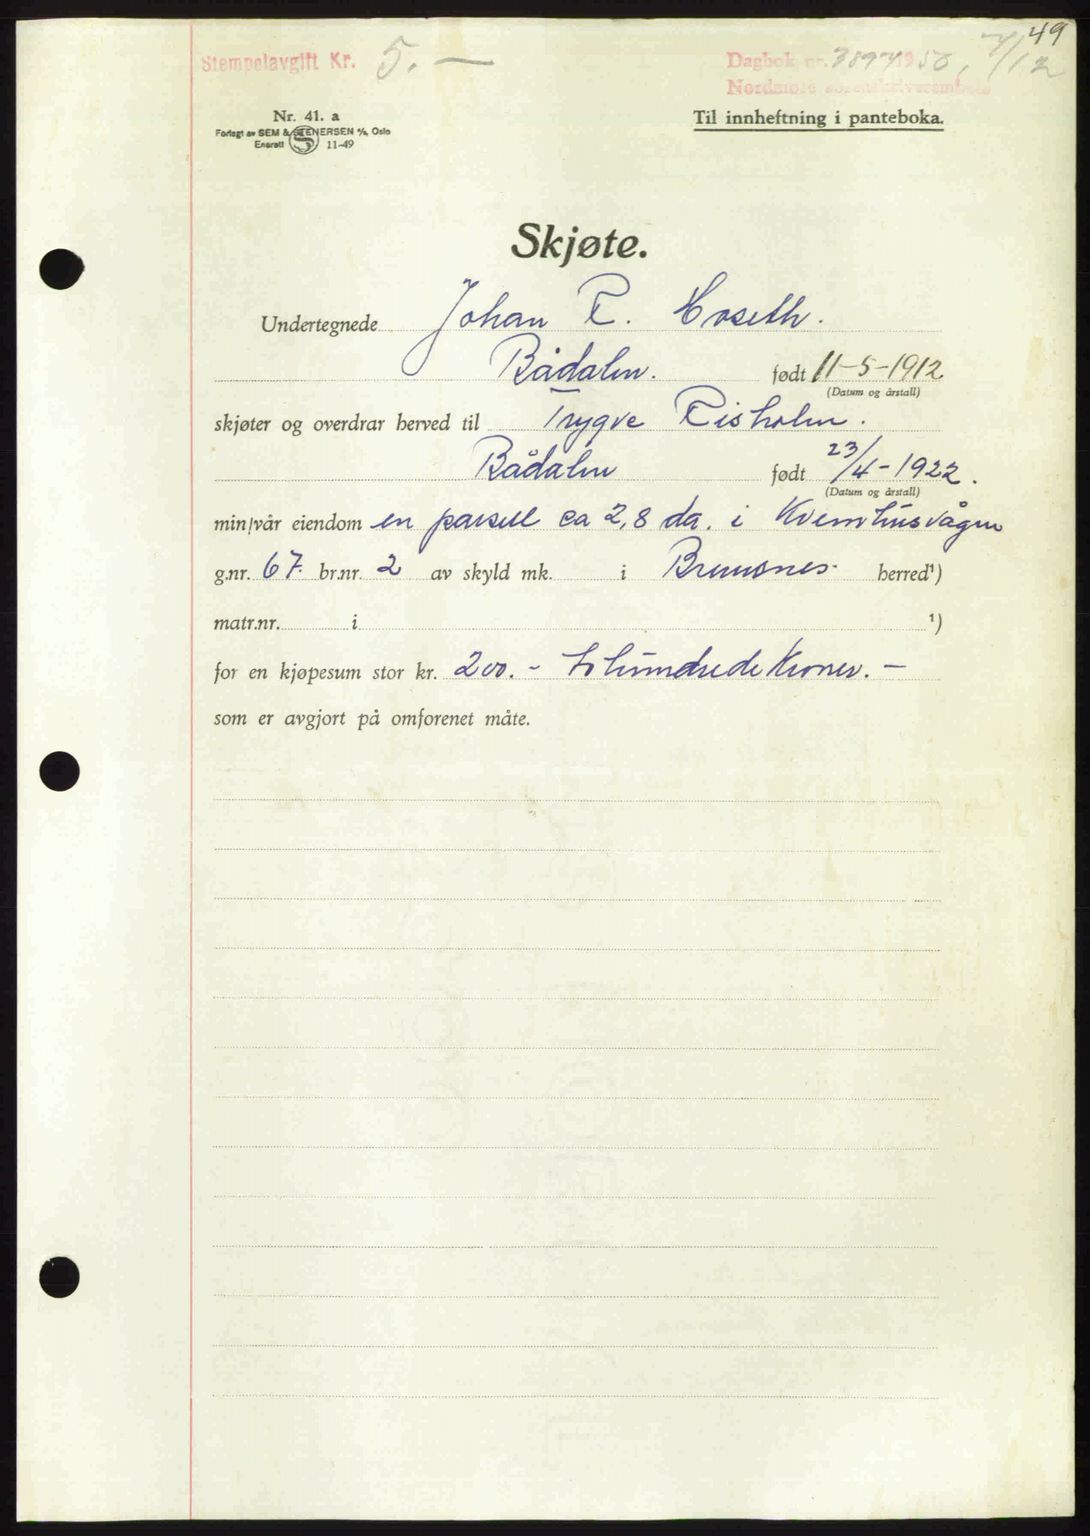 49
Stempelavgift Kr. 5. —
Dagbok nr. 3897 1950, 7/12
Nordmøre sorenskriverembete
Nr. 41. a
Forlagt av SEM & STENERSEN A/S, Oslo
Enerett 11-49
Til innheftning i panteboka.
Skjøte.
Undertegnede Johan R. Hoseth.
Bådalen. født 11-5-1912
(Datum og årstall)
skjøter og overdrar herved til Trygve Risholm.
Bådalen født 23/4-1922.
(Datum og årstall)
min/vår eiendom en parsell ca 2,8 da. i Kvernhusvågen
g.nr. 67. br.nr. 2 av skyld mk. i Bremsnes. herred¹)
matr.nr. i ¹)
for en kjøpesum stor kr. 200.- tohundrede Kroner. —
som er avgjort på omforenet måte.